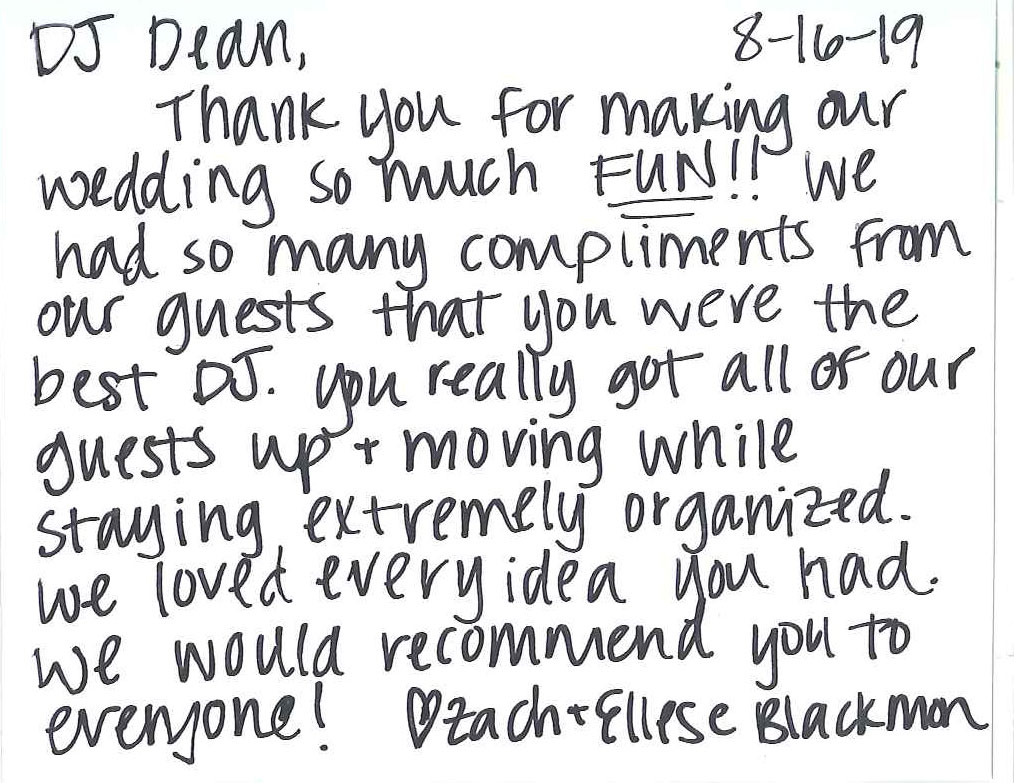 DJ Dean, 8-16-19
Thank you for making our
wedding so much FUN!! We
had so many compliments from
our guests that you were the
best DJ. you really got all of our
guests up + moving while
staying extremely organized.
we loved every idea you had.
we would recommend you to
everyone! ♡Zach + Ellese Blackmon